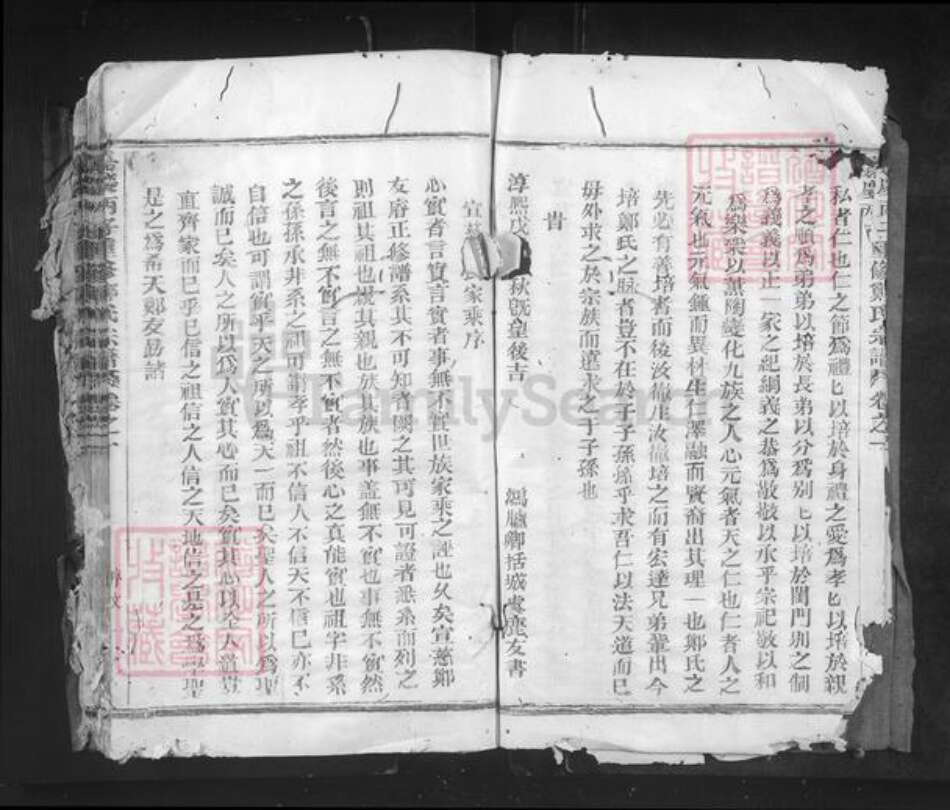 私者仁也仁之節爲禮匕以培於身禮之愛爲孝匕以培於親
孝之順爲弟弟以培於長弟以分爲別匕以培於閨門別之制
爲義義以正一家之紀綱義之恭爲敬敬以承乎宗祀敬以和
爲樂樂以薰陶變化九族之人心元氣者天之仁也仁者人之
元氣也元氣鍾而異材生仁澤融而賢裔出其理一也鄭氏之
先必有善培者而後汝衞生汝衞培之而有宏達兄弟輩出今
培鄭氏之脉者豈不在於子子孫孫乎求吾仁以法天道而已
毋外求之於宗族而遠求之于子孫也
旹
淳熙戊 秋旣望後吉 鴻臚卿括城 友書
宣慈 家乘序
心實者言實言實者事無不實世族家乘之誣也久矣宣慈鄭
友 正修譜系其不可知者闕之其可見可證者悉系而列之
則祖其祖也親其親也族其族也事蓋無不實也事無不實然
後言之無不實言之無不實者然後心之真能實也祖字非系
之係孫承非系之祖可謂孝乎祖不信人不信天不信已亦不
自信也可謂實乎天之所以爲天一而已矣聖人之所以爲聖
誠而已矣人之所以爲人實其心而已矣實其心以全人道豈
直齊家而已乎已信之祖信之人信之天地信之是之爲
是之爲希天鄭友勗諸